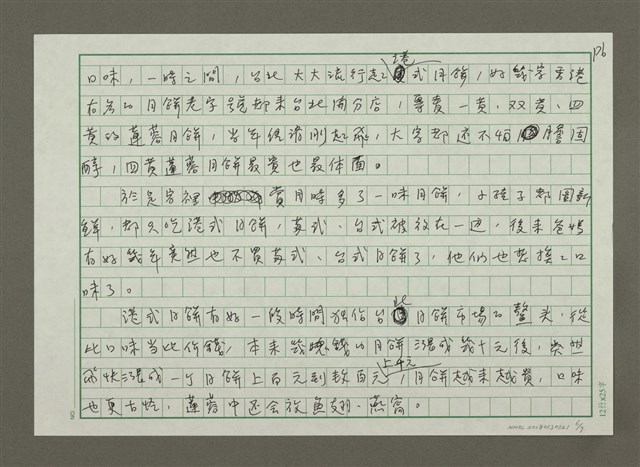 P6
口味，一時之間，台北大大流行起港式月餅，好幾家香港
有名的月餅老字號都來台北開分店，專賣一黃、双黃、四
黃的蓮蓉月餅，當年經濟剛起飛，大家都還不怕膽固
醇，四黃蓮蓉月餅最貴也最体面。
於是家裡賞月時多了一味月餅，小孩子都圖新
鮮，都只吃港式月餅，蘇式、台式被放在一边，後來爸媽
有好幾年竟然也不買蘇式、台式月餅了，他們也想換換口
味了。
港式月餅有好一段時間独佔台北月餅市場的鰲頭，從
此口味当比價錢，本來幾塊錢的月餅漲成幾十元後，突然
飛快漲成一个月餅上百元到数百元上千元，月餅越來越貴，口味
也更古怪，蓮蓉中还会放魚翅、燕窩。
12行x25字